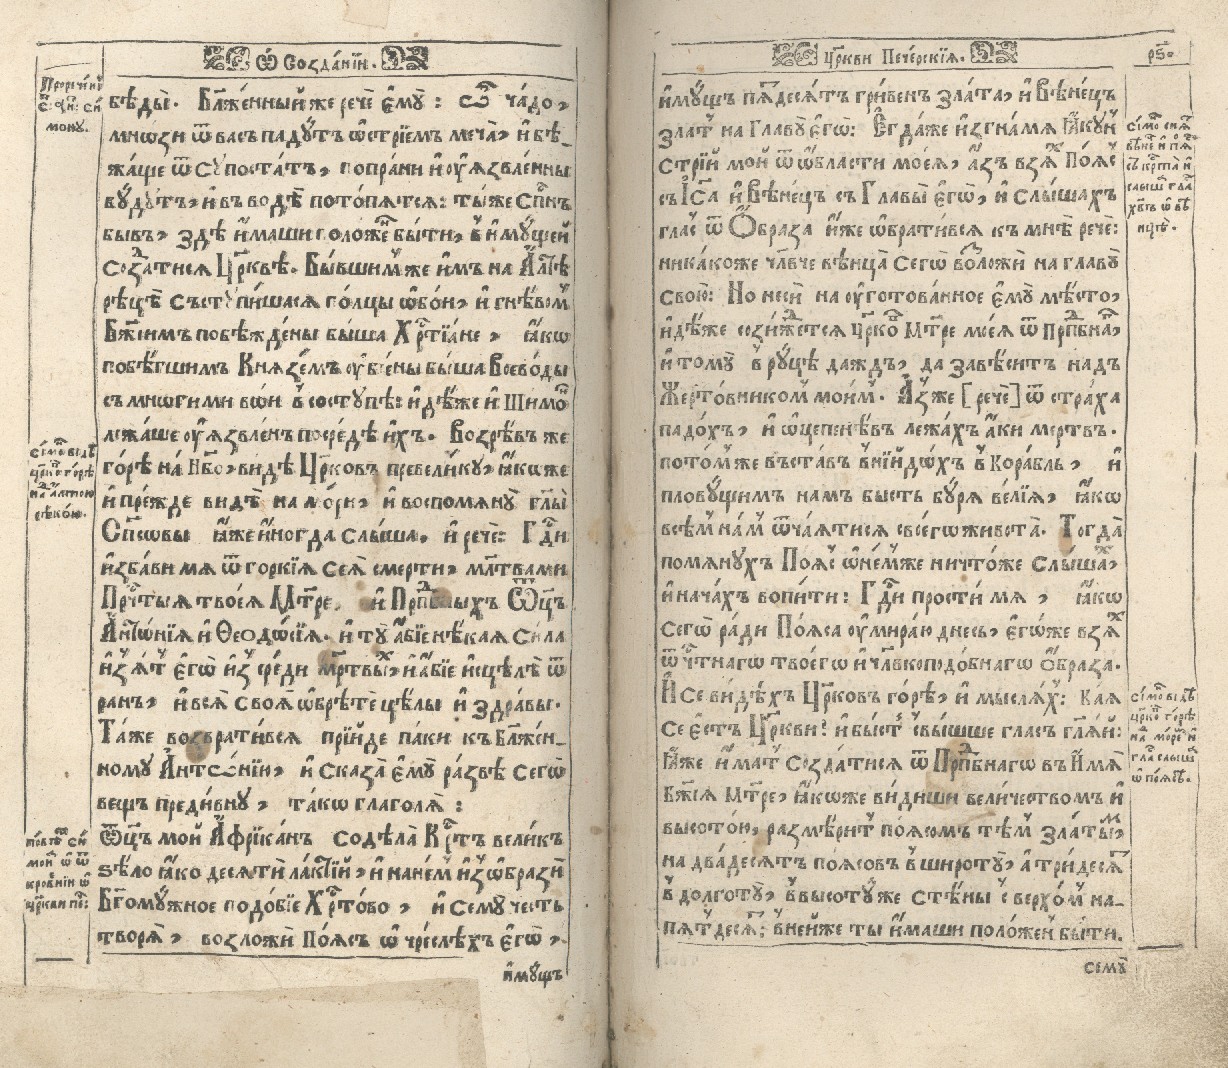 Ѡ Созда́нїи.
Проречє́нїе
мону.
бѣды̀. Бл҃же́нный же речѐ є҆мꙋ̀: Ѽ ча́до,
мнѡ́зи ѿ васъ падꙋ́тъ ѡ҆стрїе́мъ меча̀, и҆ бѣ_
жа́ще ѿ сꙋпоста́тъ, попра́ни и҆ ᲂу҆ѧ́звле́ни
бꙋ́дꙋтъ, и҆ въ водѣ̀ пото́пѧтсѧ: ты́же Сп҃нъ
бывъ, здѣ̀ и҆́маши положе́нъ бы́ти, в̾ и҆мꙋ́щей
созда́тисѧ Цр҃квѣ. Бы́вшим же и҆̀мъ на А҆лтѣ
рѣцѣ̀ съст ꙋпи́шасѧ по́лцы ѡ҆бои, и҆ гнѣ́вомъ
Бж҃їимъ побѣжде́ны бы́ша Хрⷭ҇тїа́не, ꙗ҆́кѡ
побѣ́гшимъ Кнѧзе́мъ ᲂу҆бїе́ны бы́ша Воево́ды
съ мнѡ́гими во́и в̾ состꙋпѣ: и҆дѣ́же и҆ Ши́монъ
лежа́ше ᲂу҆ѧ́звле́нъ посредѣ̀ и҆́хъ. Возрѣ́въ же
го́рѣ на́ Нб҃о, ви́дѣ Цр҃ковъ превели́кꙋ, ꙗ҆́коже
и҆ пре́жде видѣ̀ на мо́ри, и҆ воспомѧнꙋ̀ гл҃ы̀
Сп҃совы ꙗ҆̀же и҆ногда слы́ша, и҆ речѐ: Гдⷭ҇и
и҆зба́ви мѧ ѿ го́ркїѧ сеѧ̀ сме́рти, мл҃твами
Прчⷭ҇тыѧ твоеѧ̀ Мт҃ре, и҆ Прпⷣбныхъ Ѿц҃ъ
А҆нто́нїѧ и҆ Ѳеодо́сїѧ. и҆ тꙋ̀ а҆́бїе нѣ́каѧ си́ла
и҆зѧ́тъ є҆го̀ и҆з̾ среди́ мр҃твыхъ, и҆ а҆́бїе и҆сцѣлѣ̀ ѿ
ранъ, и҆ всѧ̀ своѧ̀ ѡ҆брѣ́те цѣ́лы и҆ здра́вы.
Та́же возврати́всѧ прїи́де па́ки къ Бл҃же́н_
номꙋ А҆нто́нїю, и҆ сказа̀ є҆мꙋ̀ ра́звѣ сегѡ̀
вещъ преди́внꙋ, та́кѡ глаго́лѧ:
Ѿц҃ъ мой А҆фрїка́нъ содѣ́ла Крⷭ҇тъ вели́къ
ѕѣло̀ ꙗ҆́ко десѧтѝ ла́кт҄їй, и҆ на не́мъ и҆з̾ѡбразѝ
Бг҃омꙋ́жное подо́бїе Хрⷭ҇то́во, и҆ семꙋ̀ че́сть
творѧ̀, возложѝ По́ѧсъ ѡ҆ чре́слѣхъ є҆гѡ̀,
и҆мꙋ́щъ
Цр҃кви Пече́рскїѧ.
рѕ҃.
и҆мꙋ́щъ пѧⷮдесѧ́тъ гри́венъ зла́та, и҆ Вѣне́цъ
зла́тъ на Главꙋ̀ є҆гѡ̀: Є҆гда́же и҆згна́ мѧ Ꙗ҆кꙋ́нъ
стрі́й мой ѿ ѡ҆́бласти моеѧ̀, а҆́зъ взѧ́хъ По́ѧсъ
съ І҆с҃а и҆ Вѣне́цъ съ Главы̀ є҆гѡ̀, и҆ слы́шахъ
гла́съ ѿ Ѻ҆́браза и҆́же ѡ҆брати́всѧ къ мнѣ̀ речѐ:
ника́коже чл҃вче вѣнца̀ сегѡ̀ возложѝ на главꙋ̀
свою̀: Но несѝ на ᲂу҆гото́ванное є҆мꙋ̀ мѣ́сто,
и҆дѣ́же сози́ждетсѧ цр҃ковъ Мт҃ре моеѧ̀ ѿ Прпⷣбнаг
и҆ томꙋ̀ в̾ рꙋ́цѣ да́ждъ, да завѣ́ситъ надъ
Же́ртовникомъ мои́мъ. А҆́з же [речѐ] ѿ стра́ха
падо́хъ, и҆ ѡ҆цепенѣ́въ лежа́хъ а҆́ки ме́ртвъ.
пото́м же въста́въ в̾нїидо́хъ в̾ кора́бль, и҆
пловꙋ́щимъ намъ бы́сть бꙋ́рѧ ве́лїѧ, ꙗ҆́кѡ
всѣ́мъ на́мъ ѿча́ѧтисѧ своегѡ живота̀. Тогда̀
помѧнꙋхъ По́ѧсъ ѡ҆ не́мже ничто́же слы́шахъ
и҆ нача́хъ вопи́ти: Гдⷭ҇и прости́ мѧ, ꙗ҆́кѡ
сегѡ̀ ра́ди По́ѧса ᲂу҆мира́ю дне́сь, є҆гѡ́же взѧ́хъ
ѿ чⷭ҇тнагѡ твоегѡ̀ и҆ чл҃вкоподо́бнагѡ Ѻ҆́браза.
И҆ се ви́дѣхъ Цр҃ковъ го́рѣ, и҆ мы́слѧхъ: ка́ѧ
се є҆́стъ Цр҃кви? и҆ бы́стъ свы́шше гла́съ гл҃ѧй:
Ꙗ҆́же и҆́матъ созда́тисѧ ѿ Прпⷣбнагѡ въ И҆́мѧ
Бж҃їѧ Мт҃ре, ꙗ҆́коже ви́диши вели́чествомъ и҆
высото́ю, размѣ́ритъ по́ѧсомъ тѣ́мъ златы́мъ,
на два́десѧтъ по́ѧсовъ в̾ широтꙋ̀, а҆ три́десѧтъ
в̾ долготꙋ̀, в̾ высотꙋ́ же стѣ́ны с̾ верхо́мъ на_
пѧ́тьдесѧ́тъ: в̾не́йже ты̀ и҆́маши положе́нъ бы́ти.
семꙋ̀